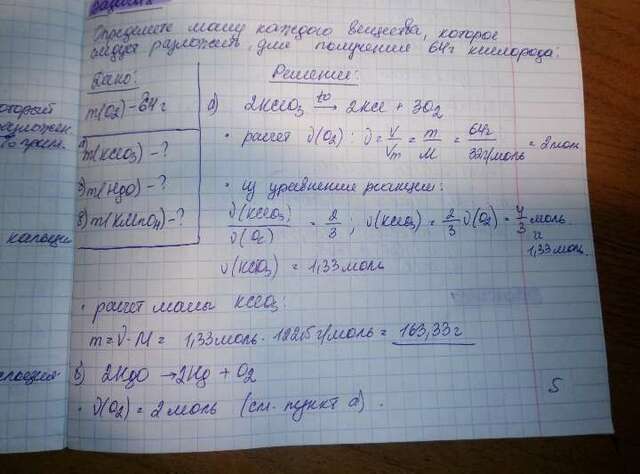 Определите массу каждого вещества, которое
следует разложить, для получения 64г кислорода:
Дано:
m(O₂) - 64 г
а)
m(KClO₃) - ?
б) m(HgO) - ?
в) m(KMnO₄) - ?
Решение:
а) 2KClO₃ →(t°) 2KCl + 3O₂
• расчёт ν(O₂) : ν = V/Vm = m/M = 64г/32г/моль = 2моль
• из уравнения реакции:
ν(KClO₃)/ν(O₂) = 2/3 ; ν(KClO₃) = 2/3 ν(O₂) = 4/3 моль
1,33 моль.
ν(KClO₃) = 1,33 моль
• расчёт массы KClO₃:
m = ν · M = 1,33 моль · 122,5 г/моль = 163,33 г
б) 2HgO → 2Hg + O₂
• ν(O₂) = 2 моль (см. пункт а) .
5
который
кальций